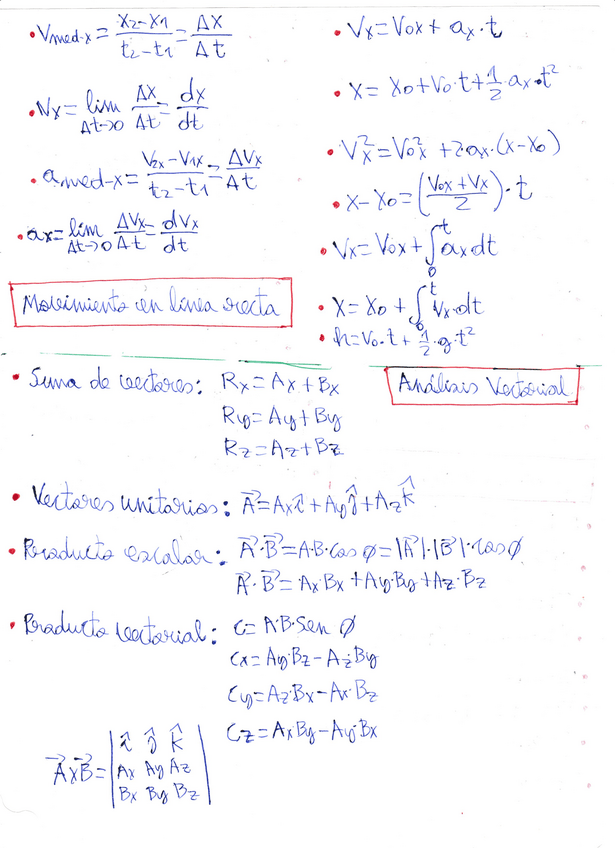 • Vmed-x = (x2-x1)/(t2-t1) = Δx/Δt
• Vx = lim Δt->0 Δx/Δt = dx/dt
• amed-x = (V2x-V1x)/(t2-t1) = ΔVx/Δt
• ax = lim Δt->0 ΔVx/Δt = dVx/dt
Movimiento en línea recta
• Vx = Vox + ax·t
• x = xo + Vo·t + 1/2·ax·t²
• Vx² = Vox² + 2·ax·(x-xo)
• x-xo = ((Vox+Vx)/2)·t
• Vx = Vox + ∫₀ᵗ ax dt
• x = xo + ∫₀ᵗ Vx·dt
• h = Vo·t + 1/2·g·t²
Análisis Vectorial
• Suma de vectores: Rx = Ax + Bx
Ry = Ay + By
Rz = Az + Bz
• Vectores unitarios: A⃗ = Ax î + Ay ĵ + Az k̂
• Producto escalar: A⃗·B⃗ = A·B·Cos φ = |A⃗|·|B⃗|·cos φ
A⃗·B⃗ = Ax·Bx + Ay·By + Az·Bz
• Producto vectorial: C = A·B·Sen φ
Cx = Ay·Bz - Az·By
Cy = Az·Bx - Ax·Bz
Cz = Ax·By - Ay·Bx
A⃗xB⃗ = | î ĵ k̂ |
| Ax Ay Az |
| Bx By Bz |